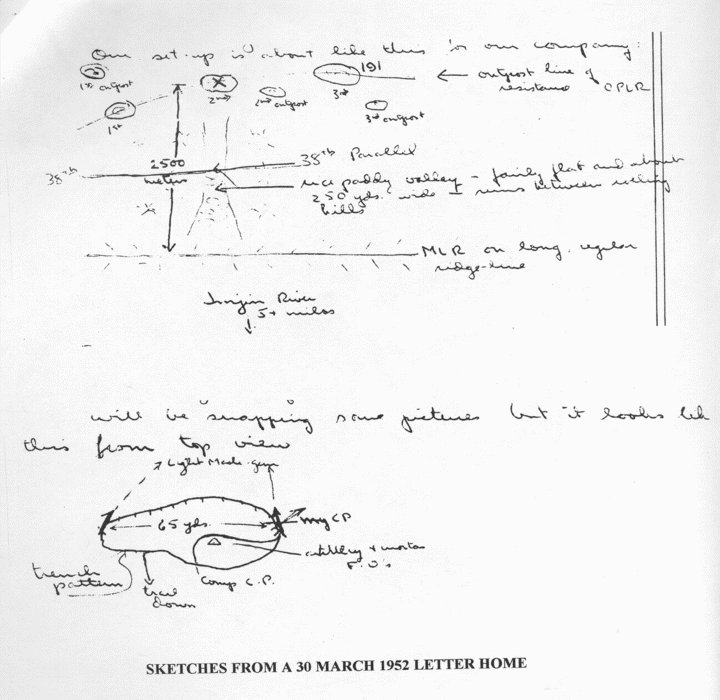 Our set-up is about like this in our company:
191
1st outpost
2nd
2nd outpost
3rd
outpost line of
resistance OPLR
1st
3rd outpost
2500
meters
38th Parallel
38th
rice paddy valley - fairly flat and about
250 yds. wide - runs between rolling
hills
MLR on long, regular
ridge-line
Imjin River
5+ miles
will be snapping some pictures but it looks like
this from top view
Light Mach. guns
65 yds.
my CP
artillery & mortar
F.O.'s
trench
pattern
trail
down
Comp C.P.
SKETCHES FROM A 30 MARCH 1952 LETTER HOME